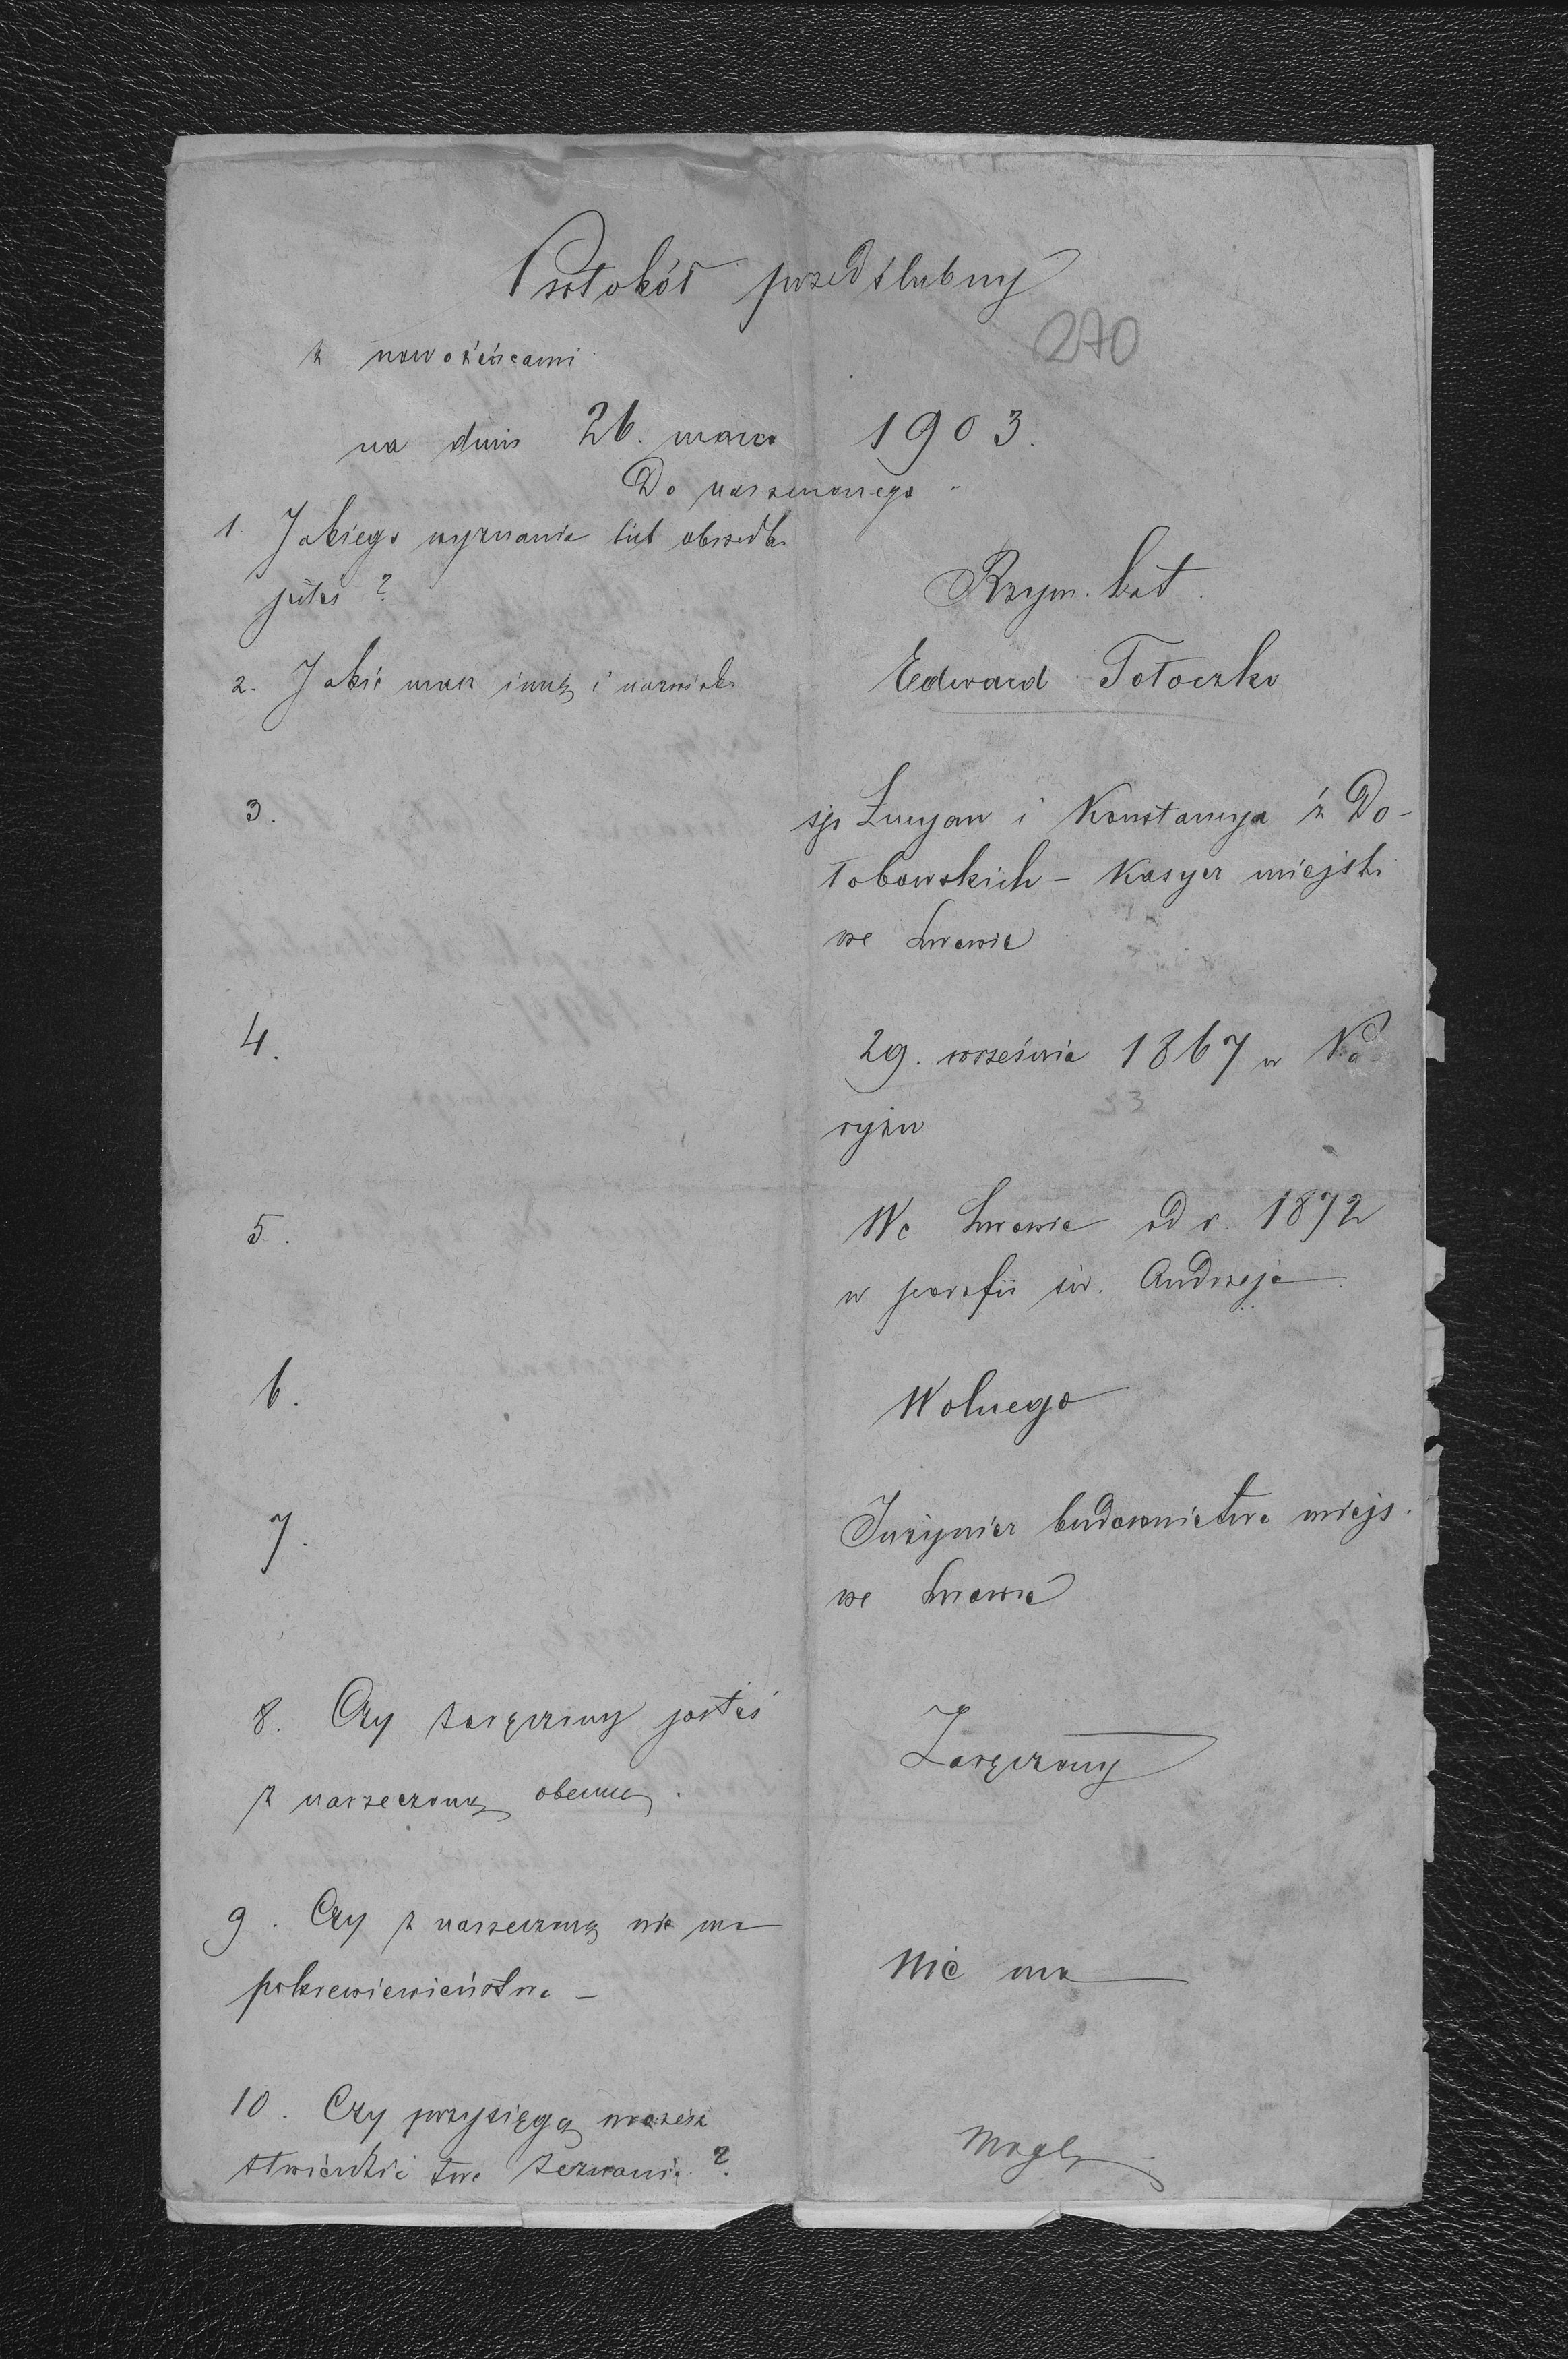 Protokół przedślubny
270
z nowożeńcami
na dniu 26. marca 1903.
Do narzeczonego
1. Jakiego wyznania lub obrządku
jesteś?
Rzym. kat.
2. Jakie masz imię i nazwisko
Edward Tołoczko
3.
śp Lucyan i Konstancya z Do-
łobowskich - Kasyer miejski
we Lwowie
4.
29. września 1867 w Na
ryżu
33
5.
We Lwowie od r. 1872
w parafii św. Andrzeja
6.
Wolnego
7.
Inżynier budownictwa miejs.
we Lwowie
8. Czy zaręczony jesteś
z narzeczoną obecną.
Zaręczony
9. Czy z narzeczoną nie ma
pokrewieństwa -
Nie ma
10. Czy przysięgą możesz
stwierdzić twe zeznanie?
Mogę